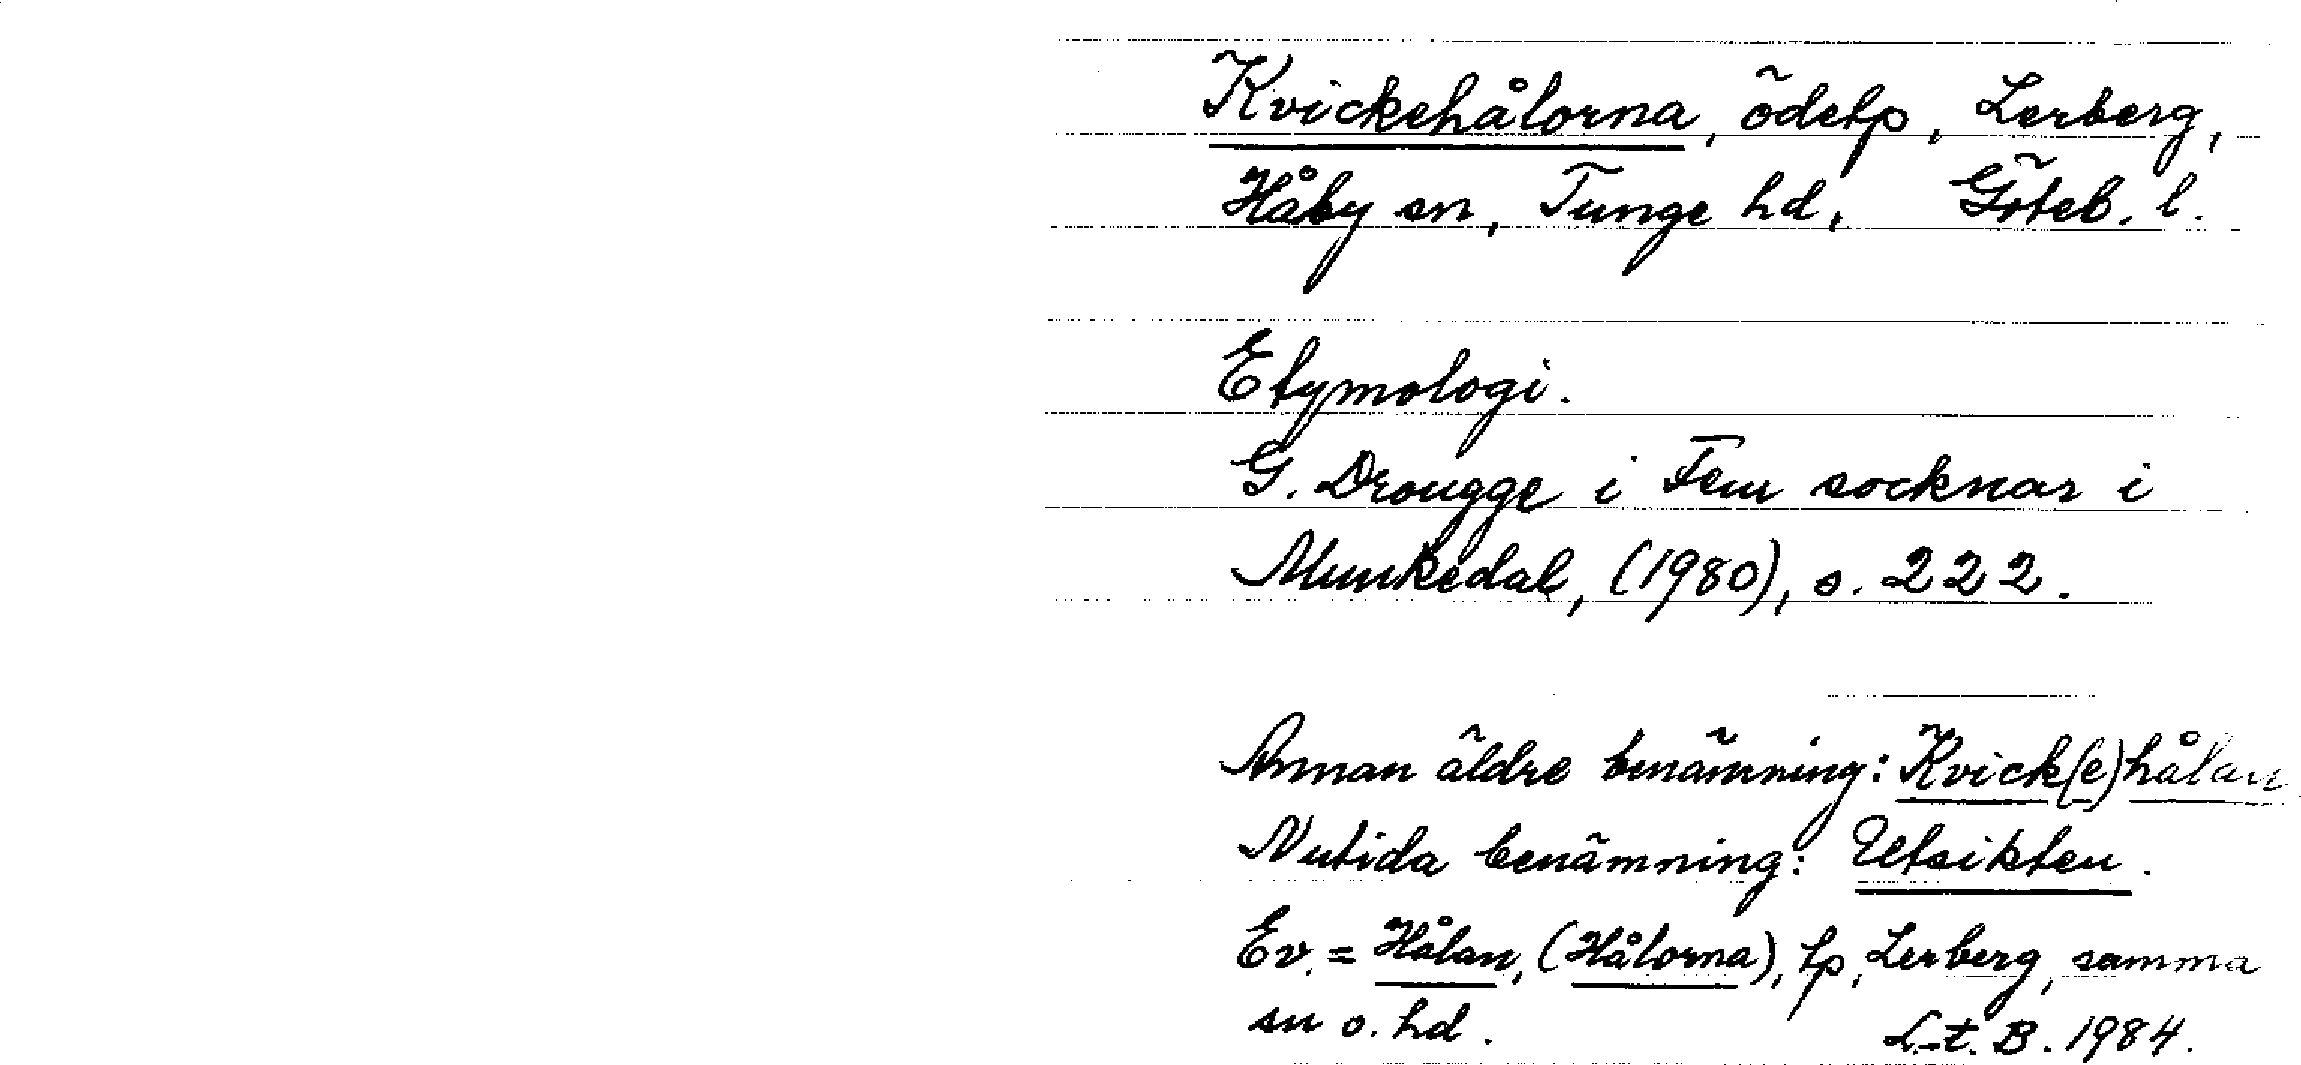 Kvickehålorna, ödetp, Lerberg,
Håby sn, Tunge hd, Göteb. l.
Etymologi.
G. Drougge i Fem socknar i
Munkedal, (1980), s. 222.
Annan äldre benämning: Kvick(e)hålan
Nutida benämning: Utsikten.
Ev. = Hålan, (Hålorna), tp, Lerberg, samma
sn o. hd. L-t. B. 1984.